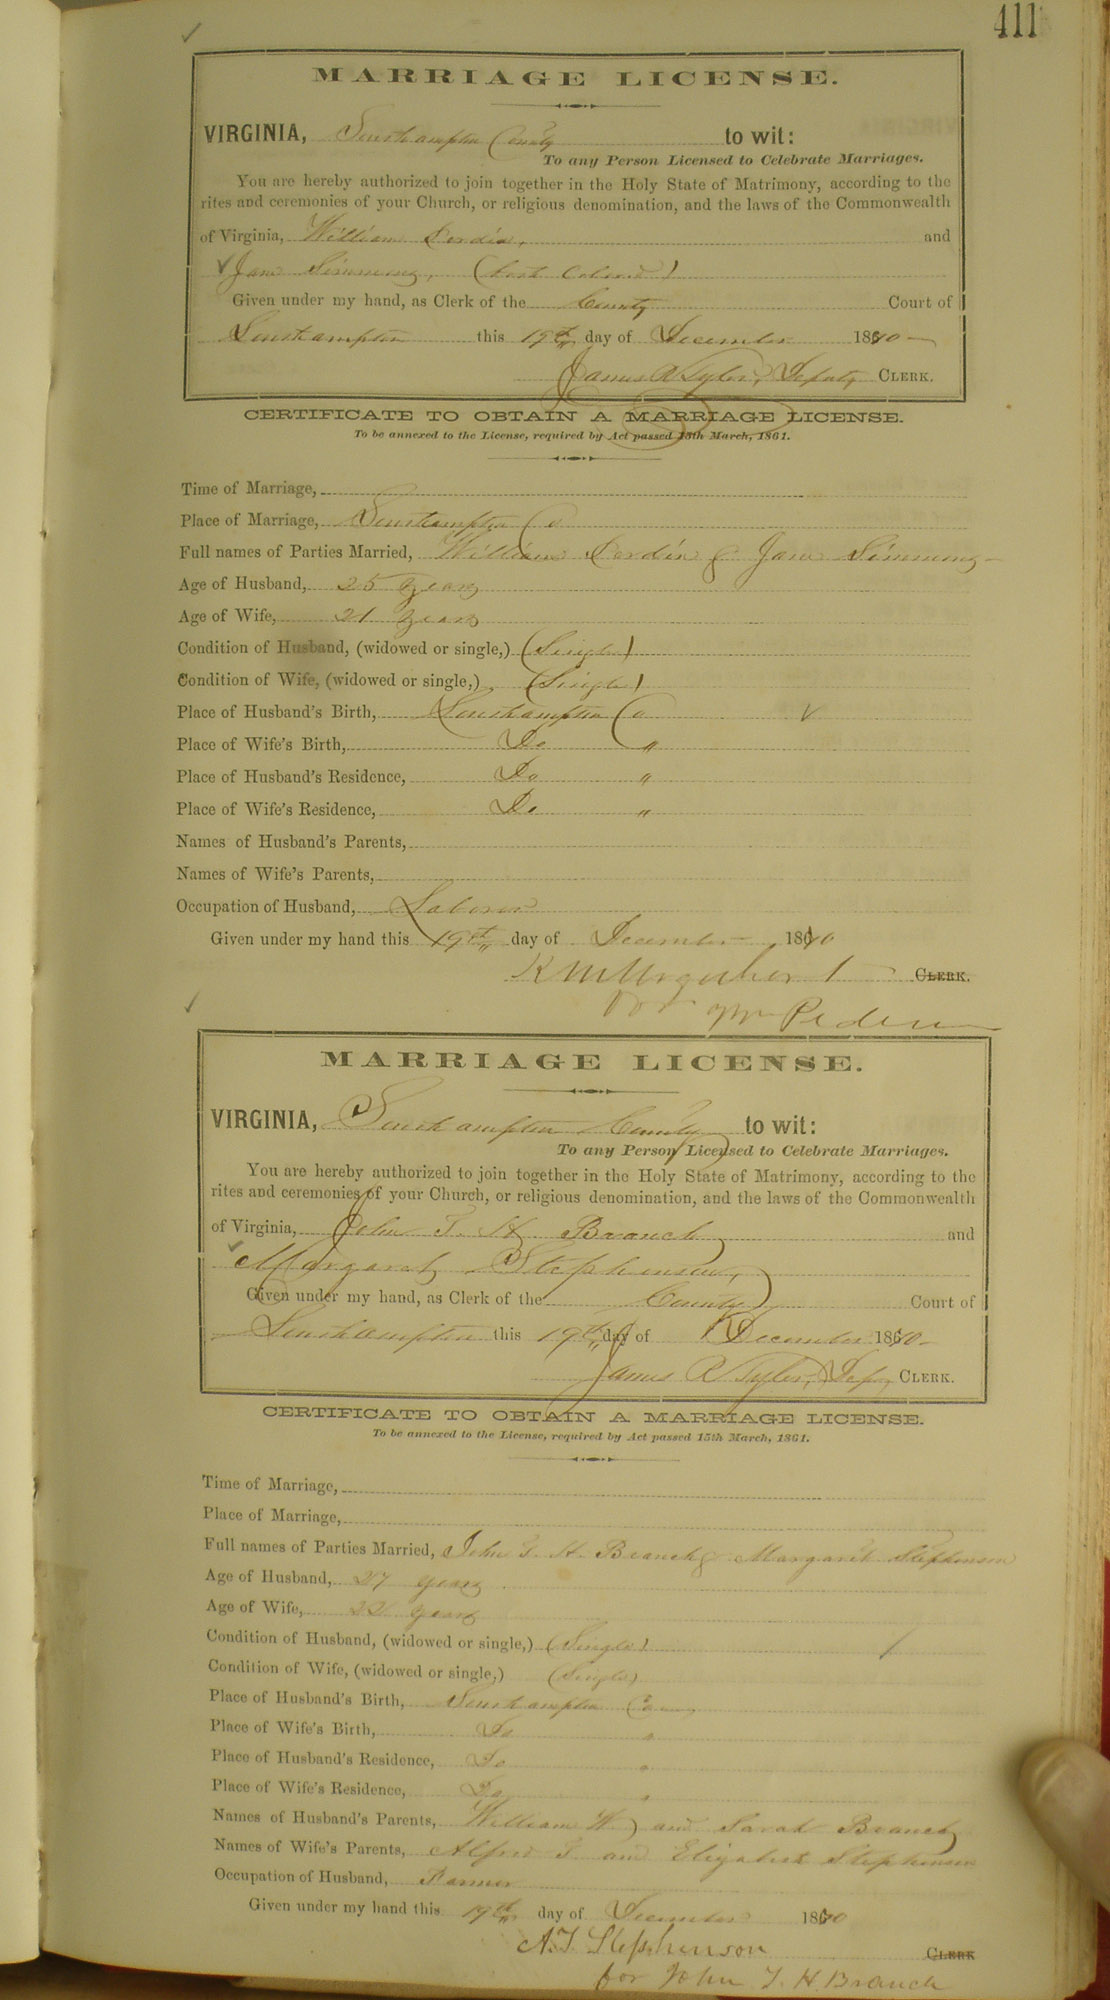 411
MARRIAGE LICENSE.
VIRGINIA, Southampton County to wit:
To any Person Licensed to Celebrate Marriages.
You are hereby authorized to join together in the Holy State of Matrimony, according to the
rites and ceremonies of your Church, or religious denomination, and the laws of the Commonwealth
of Virginia, William and
Jane Simmons, (both Colored)
Given under my hand, as Clerk of the County Court of
Southampton this 19th day of December 1870
James R Tyler, Deputy CLERK.
CERTIFICATE TO OBTAIN A MARRIAGE LICENSE.
To be annexed to the License, required by Act passed 15th March, 1861.
Time of Marriage,
Place of Marriage, Southampton Co
Full names of Parties Married, William & Jane Simmons
Age of Husband, 25 years
Age of Wife, 21 years
Condition of Husband, (widowed or single,) (Single)
Condition of Wife, (widowed or single,) (Single)
Place of Husband's Birth, Southampton Co
Place of Wife's Birth, Do "
Place of Husband's Residence, Do "
Place of Wife's Residence, Do "
Names of Husband's Parents,
Names of Wife's Parents,
Occupation of Husband, Laborer
Given under my hand this 19th day of December 1870
CLERK.
for Wm
MARRIAGE LICENSE.
VIRGINIA, Southampton County to wit:
To any Person Licensed to Celebrate Marriages.
You are hereby authorized to join together in the Holy State of Matrimony, according to the
rites and ceremonies of your Church, or religious denomination, and the laws of the Commonwealth
of Virginia, John T. H. Branch and
Margaret Stephenson,
Given under my hand, as Clerk of the County Court of
Southampton this 19th day of December 1870
James R Tyler, Depy CLERK.
CERTIFICATE TO OBTAIN A MARRIAGE LICENSE.
To be annexed to the License, required by Act passed 15th March, 1861.
Time of Marriage,
Place of Marriage,
Full names of Parties Married, John T. H. Branch & Margaret Stephenson
Age of Husband, 27 years
Age of Wife, 22 years
Condition of Husband, (widowed or single,) (Single)
Condition of Wife, (widowed or single,) (Single)
Place of Husband's Birth, Southampton County
Place of Wife's Birth, Do "
Place of Husband's Residence, Do "
Place of Wife's Residence, Do "
Names of Husband's Parents, William W. and Sarah Branch
Names of Wife's Parents, Alfred T. and Elizabeth Stephenson
Occupation of Husband, Farmer
Given under my hand this 19th day of December 1870
A. T. Stephenson CLERK
for John T. H. Branch